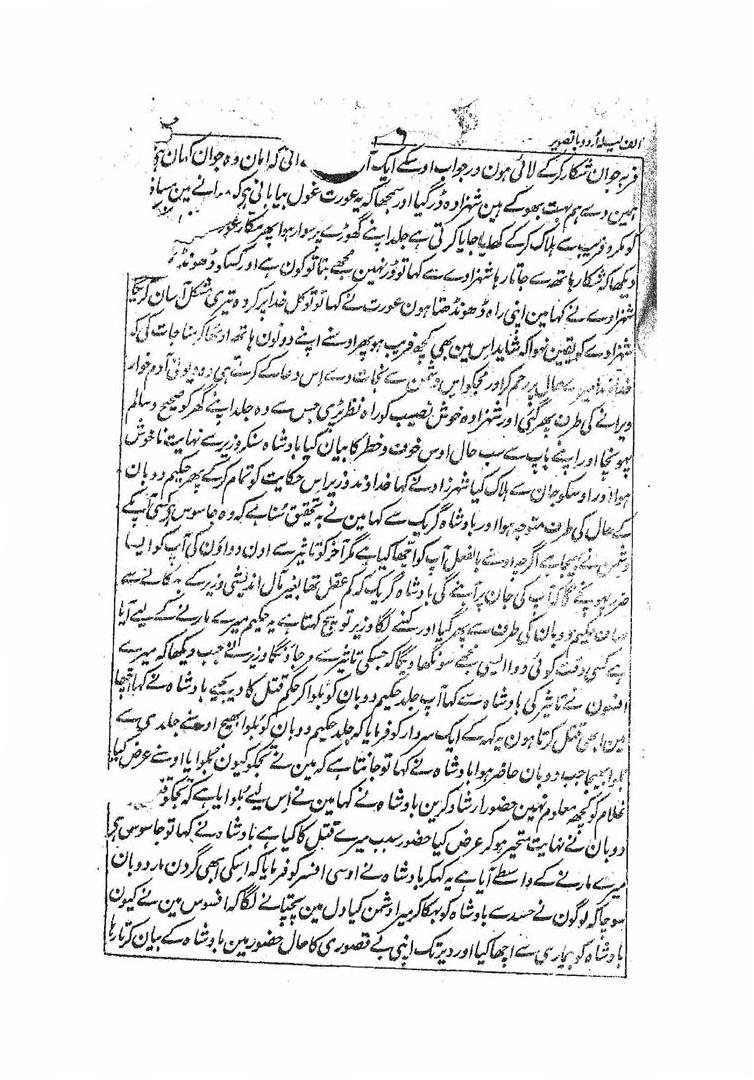 الف لیلہ اردو باتصویر
فربہ جوان شکار کرکے لائی ہون ور جواب اوسکے ایک آ ائی کہ امان وہ جوان کہان ہی
ہمین دے ہم بہت بھوکے ہین شہزادہ ڈر گیا اور سمجھا کہ یہ عورت غول بیابانی ہی کہ
کو مکر و فریب سے ہلاک کرکے کھا لیا جایا کرتی ہے جلد اپنے گھوڑے پر سوار ہوا پھر مکار عورت
دیکھا کہ شکار ہاتھ سے جاتا رہا شہزادے سے کہا تو ڈر نہین مجھے بتا تو کون ہے اور کسکو ڈھونڈ
شہزادے نے کہا مین اپنی راہ ڈھونڈھتا ہون عورت نے کہا تو توکل خدا پر کر وہ تیری مشکل آسان کریگا
شہزادے کو یقین نہوا کہ شاید اس مین بھی کچھ فریب ہو پھر اوسنے اپنے دونون ہاتھ اوٹھا کر مناجات کی کہ
حال پر رحم کر اور مجکو اس دشمن سے نجات دے اس دعا کے کرتے ہی وہ آدم خوار
ویرانے کی طرف پھر گئی اور شہزادہ خوش نصیب کو راہ نظر پڑی جس سے وہ جلد اپنے گھر کو صحیح و سالم
پہونچا اور اپنے باپ سے سب حال اوس خوف و خطر کا بیان کیا بادشاہ سنکر وزیر سے نہایت ناخوش
ہوا اور اوسکو جان سے ہلاک کیا شہرزاد نے کہا خداوند وزیر اس حکایت کو تمام کرکے پھر حکیم دوبان
کے حال کی طرف متوجہ ہوا اور بادشاہ گریک سے کہا مین نے بتحقیق سنا ہے کہ وہ جاسوس ہی کسی آپکے
دشمن نے بھیجا ہے اگرچہ اوسنے بالفعل آپ کو اچھا کیا ہے مگر آخر کو تاثیر سے اون دواؤن کی آپ کو ایسا
ضرر پہونچے گا کہ آپ کی جان پر آبنے گی بادشاہ گریک کہ کم عقل تھا بغیر مآل اندیشی وزیر کے بہکانے سے
حکیم دوبان کی طرف سے پھر گیا اور کہنے لگا وزیر تو سچ کہتا ہے یہ حکیم میرے مارنے کے لیے آیا
ہے کسی وقت کوئی دوا ایسی مجھے سونگھا دیگا کہ جسکی تاثیر سے مر جاؤنگا وزیر نے جب دیکھا کہ میرے
افسون نے تاثیر کی بادشاہ سے کہا آپ جلد حکیم دوبان کو بلوا کر حکم قتل کا دیجیے بادشاہ نے کہا اچھا
مین ابھی قتل کرتا ہون یہ کہہ کے ایک سردار کو فرمایا کہ جلد حکیم دوبان کو بلوا بھیج اوسنے جلدی سے
بلوا بھیجا جب دوبان حاضر ہوا بادشاہ نے کہا تو جانتا ہے کہ مین نے تجکو کیون بلوایا اوسنے عرض کیا
غلام کو کچھ معلوم نہین حضور ارشاد کرین بادشاہ نے کہا مین نے اس لیے بلوایا ہے کہ تجکو
دوبان نے نہایت متحیر ہو کر عرض کیا حضور سبب میرے قتل کا کیا ہے بادشاہ نے کہا تو جاسوس ہی
میرے مارنے کے واسطے آیا ہے یہ کہکر بادشاہ نے اوسی افسر کو فرمایا کہ اسکی ابھی گردن مار دوبان
سوچا کہ لوگون نے حسد سے بادشاہ کو بہکا کر میرا دشمن کیا دل مین پچتانے لگا کہ افسوس مین نے کیون
بادشاہ کو بیماری سے اچھا کیا اور دیر تک اپنی بے قصوری کا حال حضور مین بادشاہ کے بیان کرتا رہا